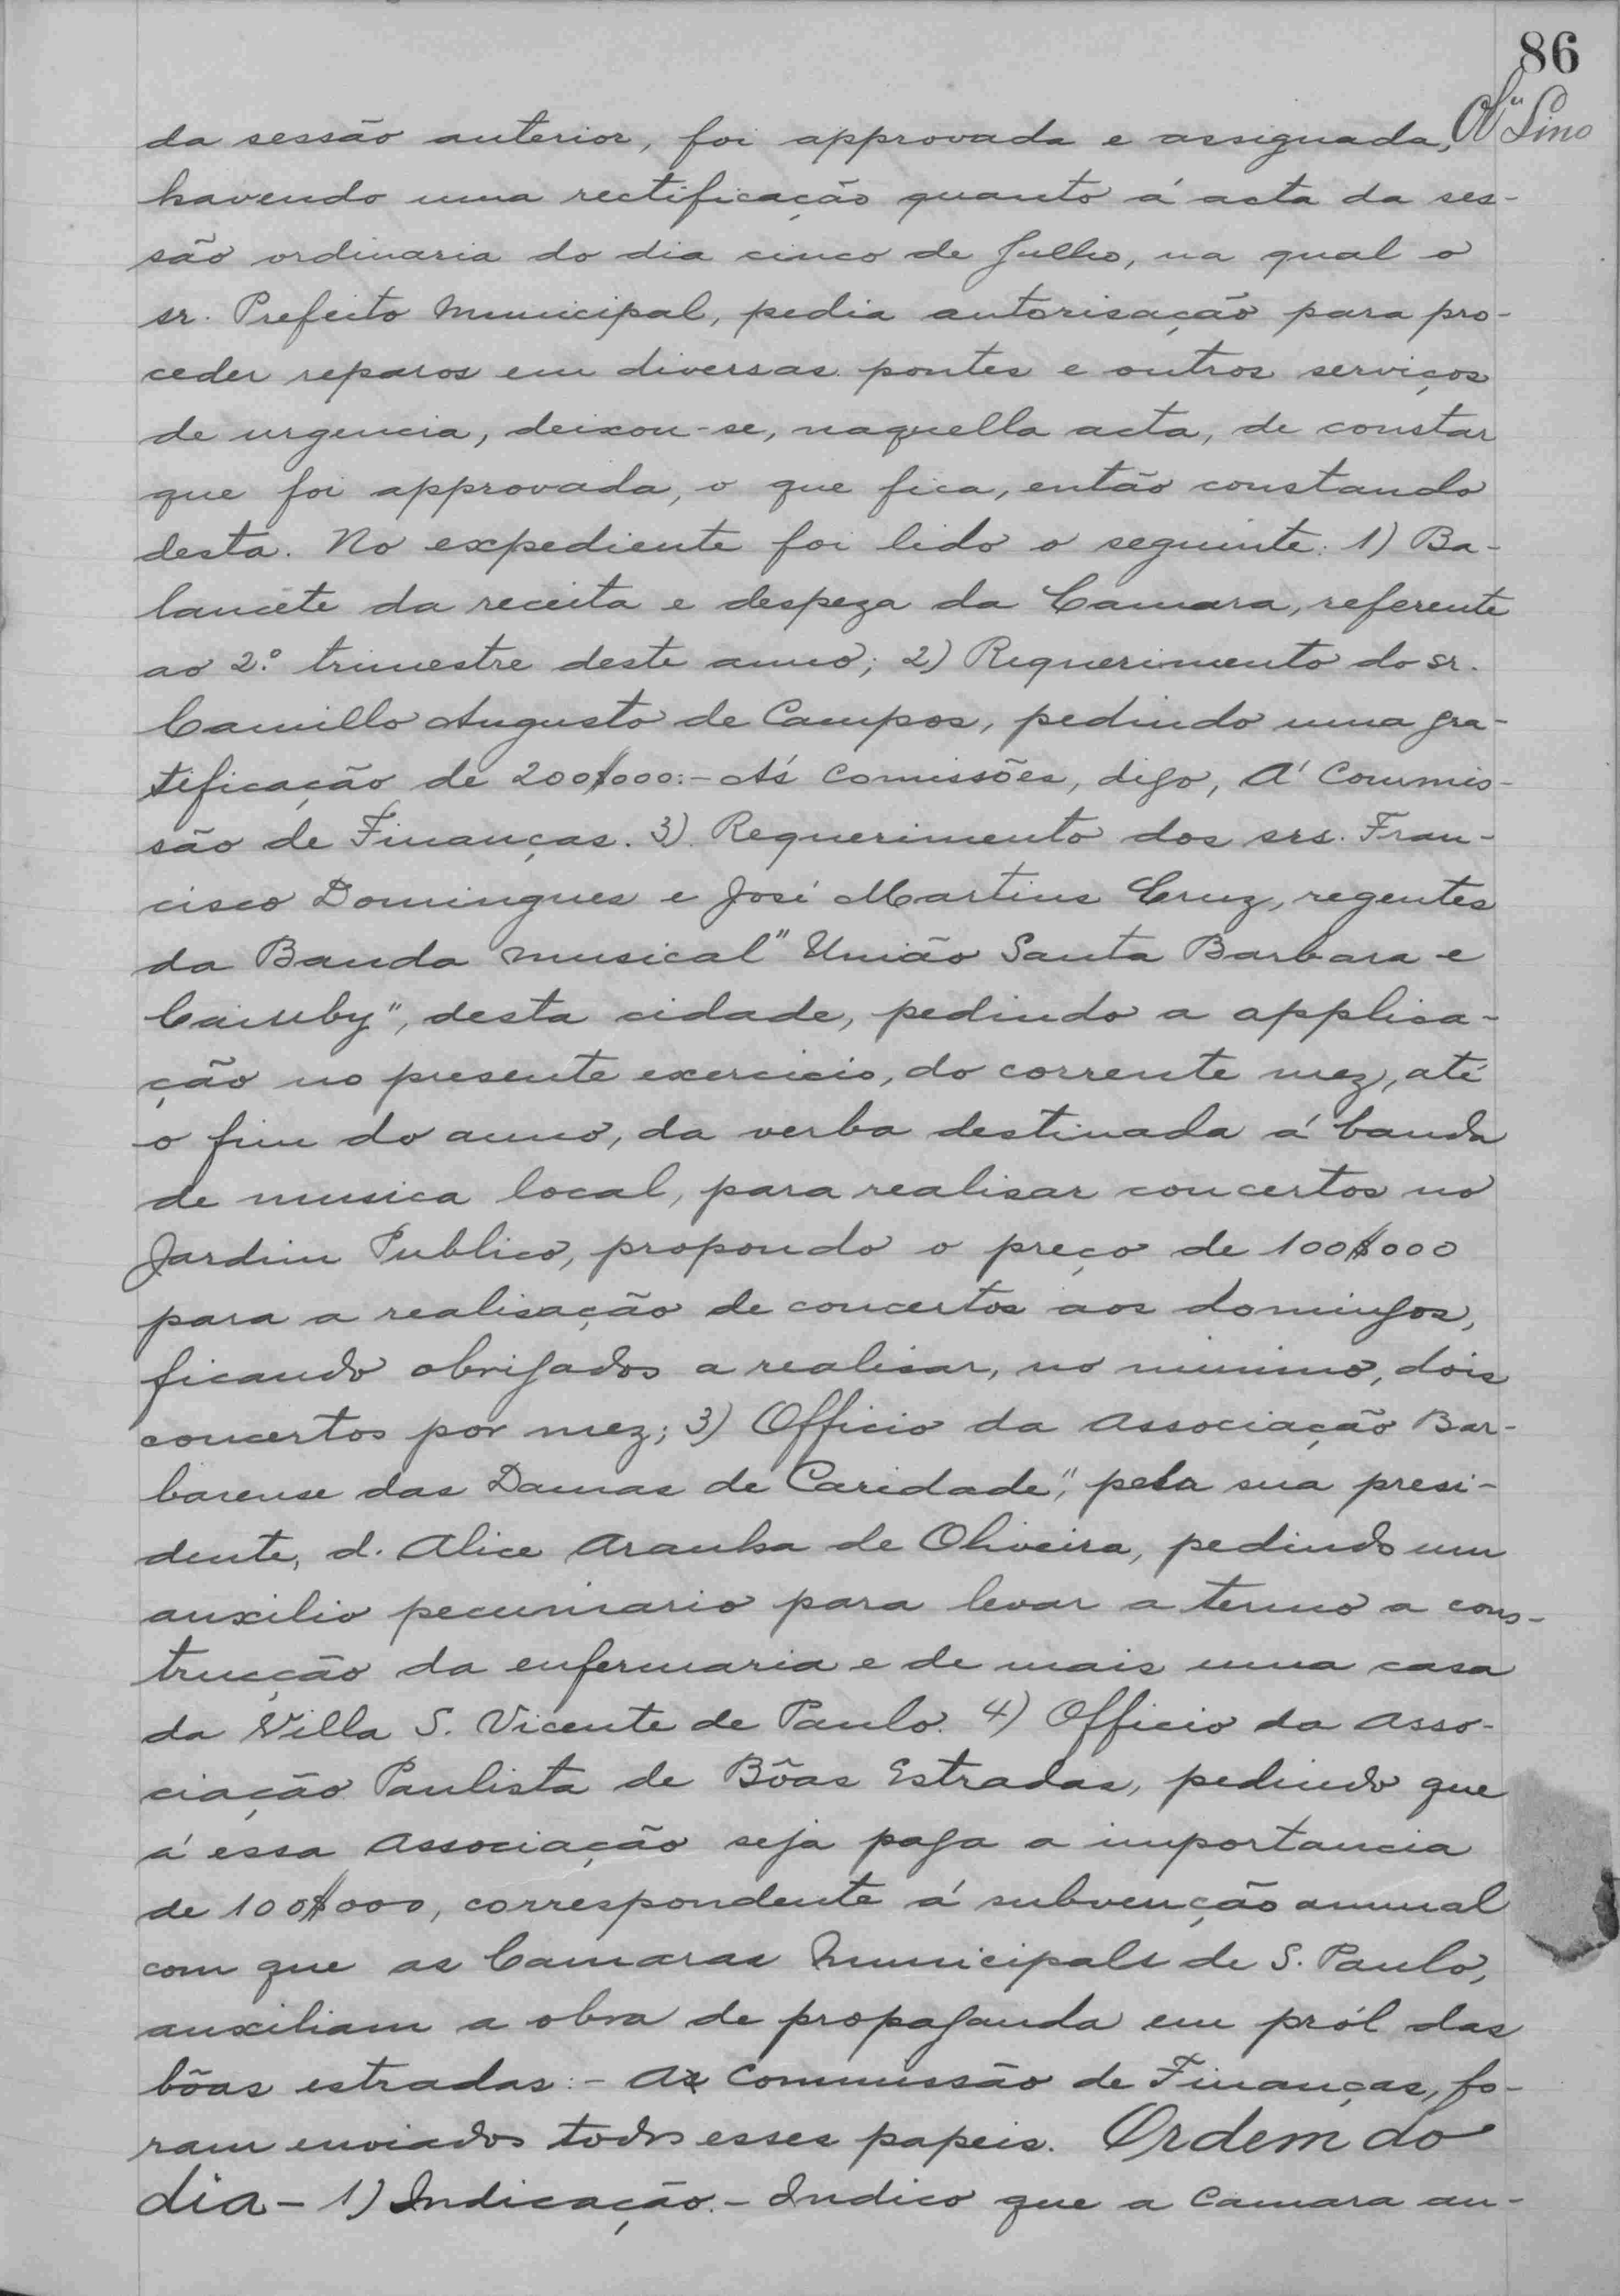 86
Lino
da sessão anterior, foi approvada e assignada,
havendo uma rectificação quanto á acta da ses-
são ordinaria do dia cinco de Julho, na qual o
sr. Prefeito Municipal, pedia autorisação para pro-
ceder reparos em diversas pontes e outros serviços
de urgencia, deixou-se, naquella acta, de constar
que foi approvada, o que fica, então constando
desta. No expediente foi lido o seguinte: 1) Ba-
lancête da receita e despeza da Camara, referente
ao 2.º trimestre deste anno; 2) Requerimento do sr.
Camillo Augusto de Campos, pedindo uma gra-
tificação de 200$000:- Ás Comissões, digo, Á Commis-
são de Finanças. 3) Requerimento dos srs. Fran-
cisco Domingues e José Martins Cruz, regentes
da Banda Musical "União Santa Barbara e
Caiuby", desta cidade, pedindo a applica-
ção no presente exercicio, do corrente mez, até
o fim do anno, da verba destinada á banda
de musica local, para realisar concertos no
Jardim Publico, propondo o preço de 100$000
para a realisação de concertos aos domingos,
ficando obrigados a realisar, no minimo, dois
concertos por mez; 3) Officio da Associação Bar-
barense das Damas de Caridade", pela sua presi-
dente, d. Alice Aranha de Oliveira, pedindo um
auxilio pecuniario para levar a termo a cons-
trucção da enfermaria e de mais uma casa
da Villa S. Vicente de Paulo. 4) Officio da Asso-
ciação Paulista de Bôas Estradas, pedindo que
á essa Associação seja paga a importancia
de 100$000, correspondente á subvenção annual
com que as Camaras Municipaes de S. Paulo,
auxiliam a obra de propaganda em pról das
bôas estradas:- Commissão de Finanças, fo-
ram enviados todos esses papeis. Ordem do
dia - 1) Indicação.- Indico que a Camara au-